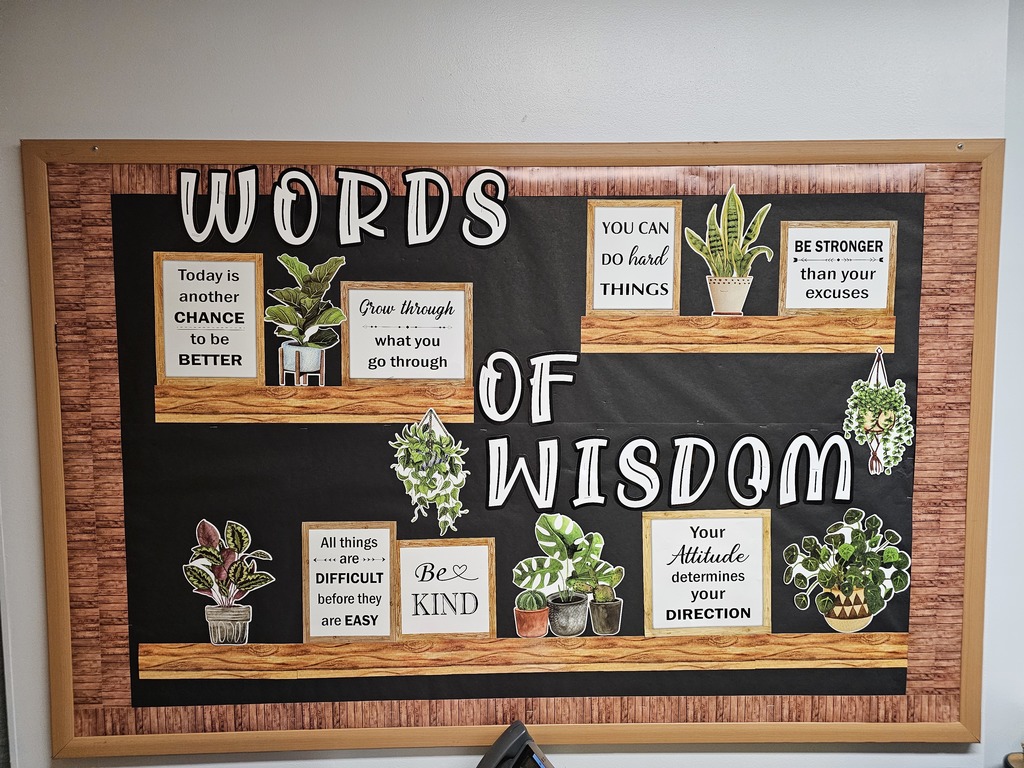 WORDS
OF
WISDOM
Today is
another
CHANCE
to be
BETTER
Grow through
what you
go through
YOU CAN
DO hard
THINGS
BE STRONGER
than your
excuses
All things
are
DIFFICULT
before they
are EASY
Be
KIND
Your
Attitude
determines
your
DIRECTION